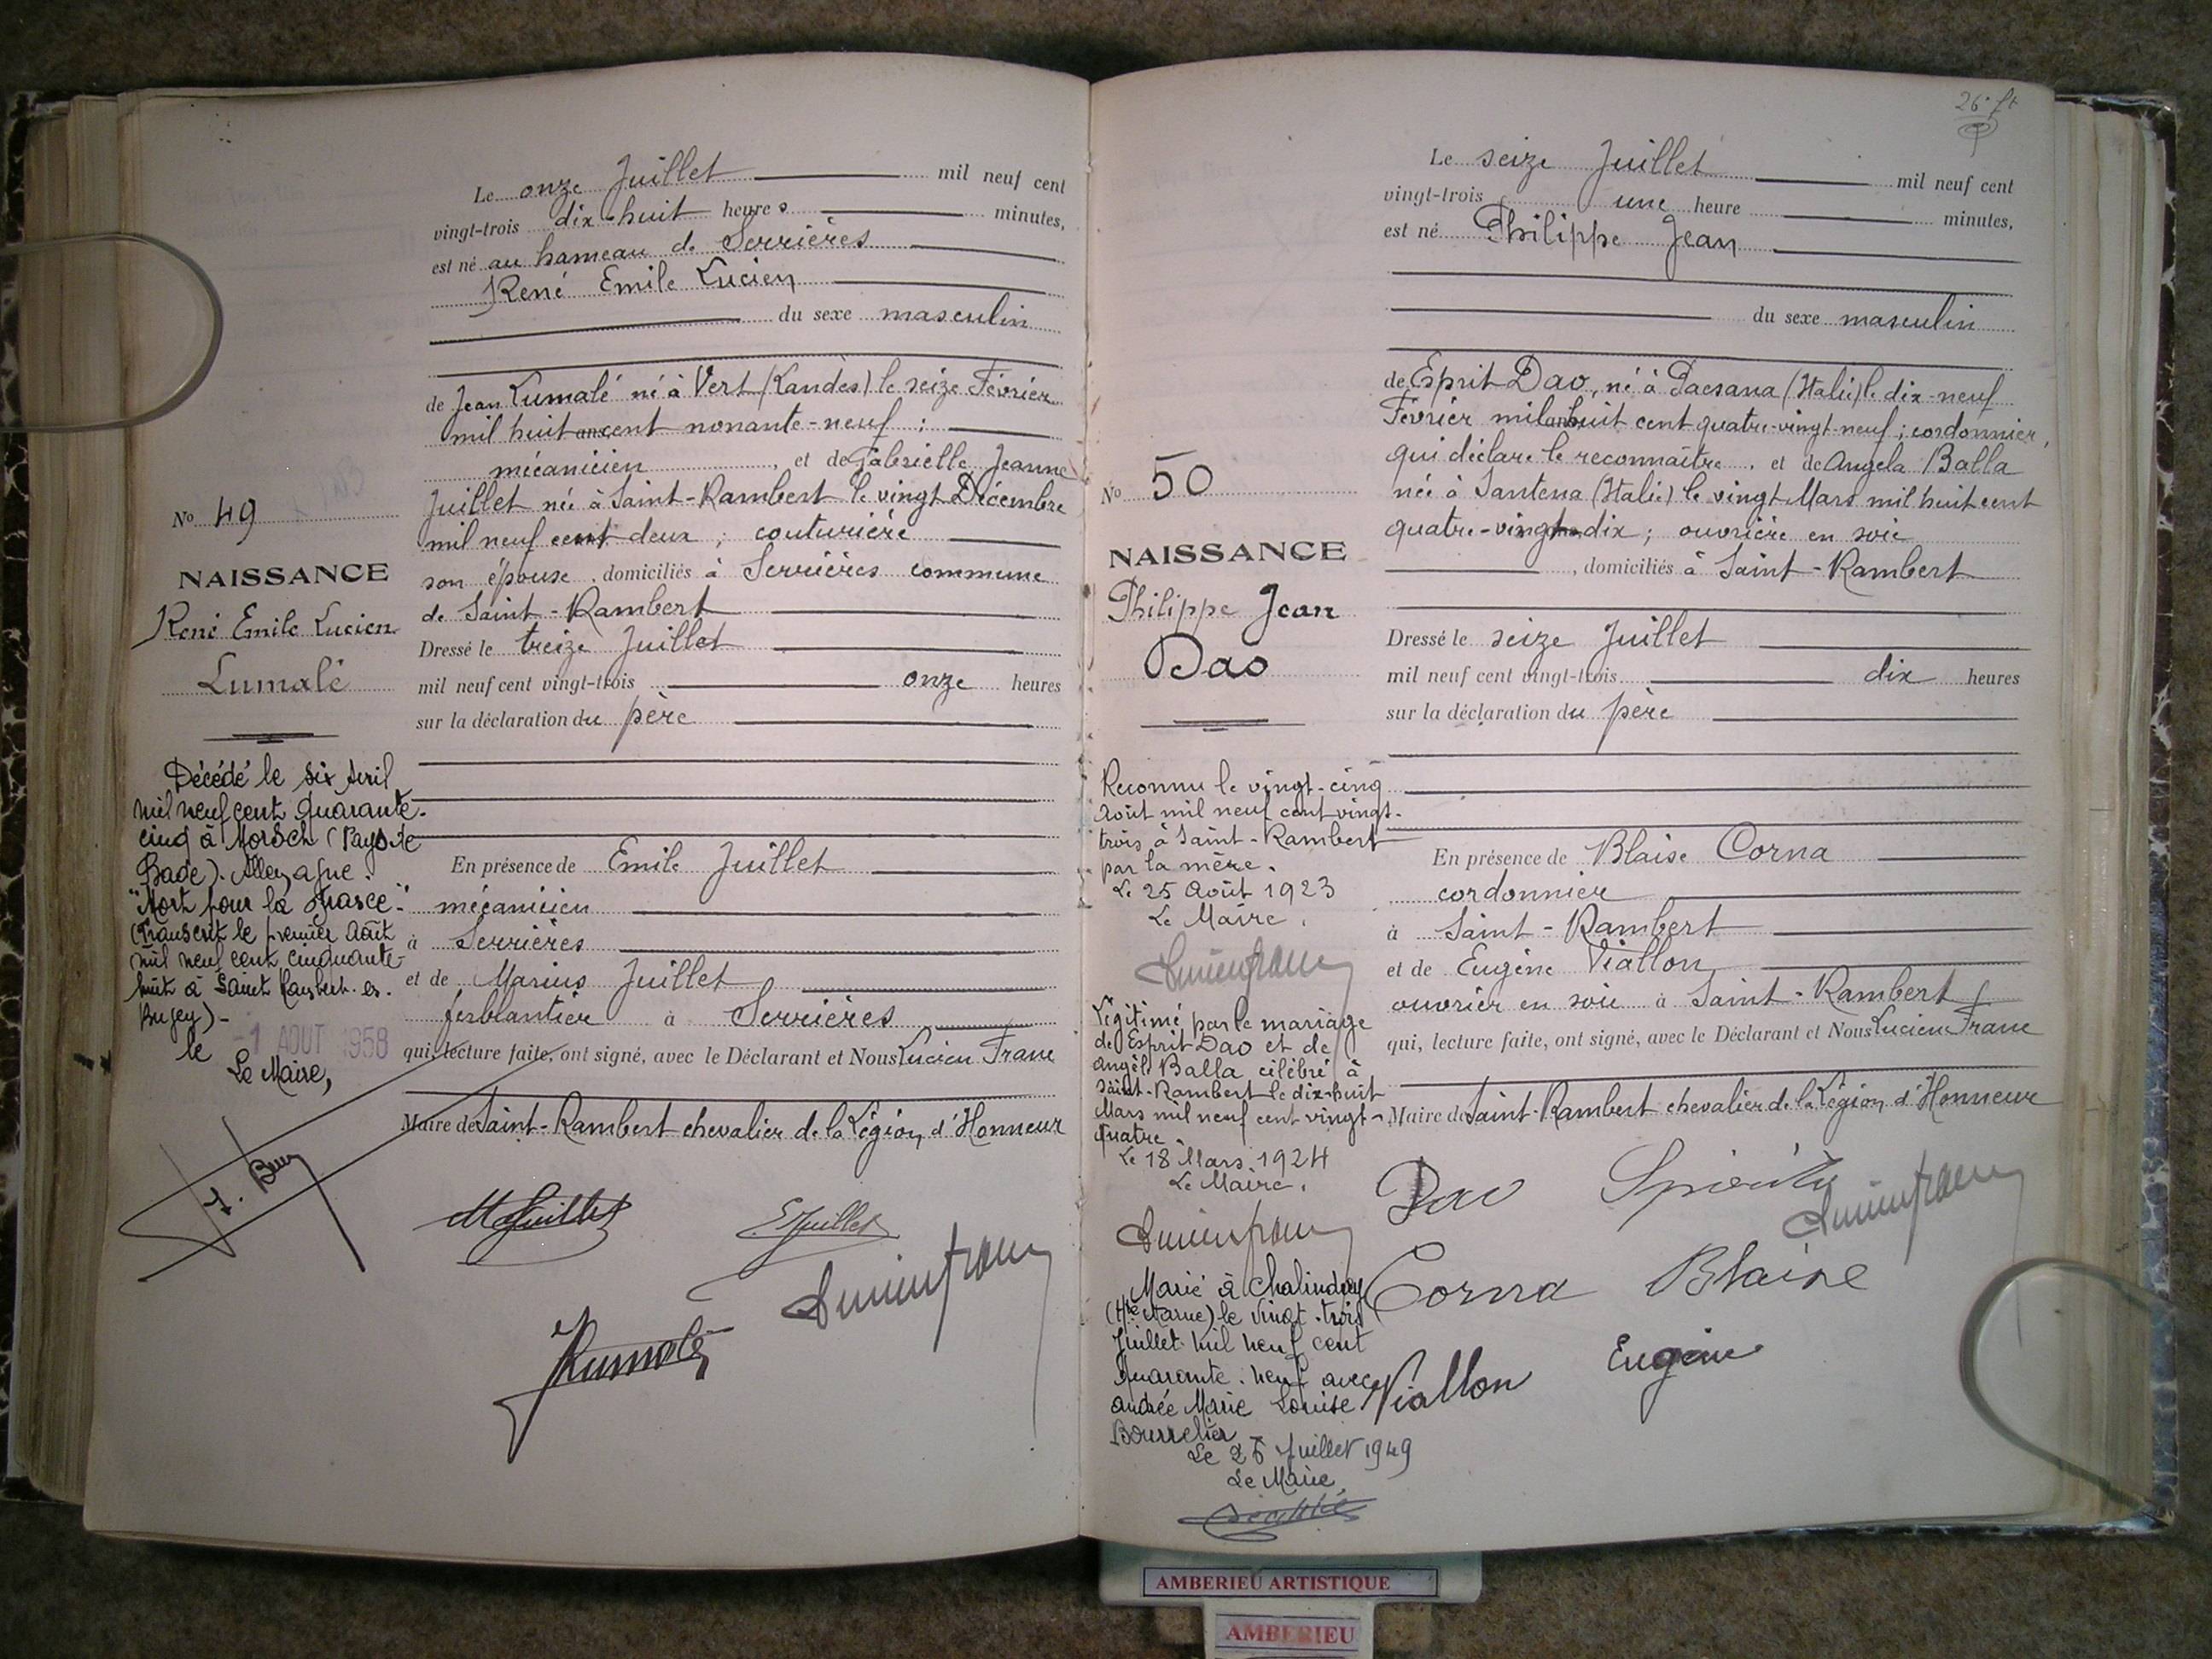 N° 49
NAISSANCE
René Emile Lucien
Lumalé
Décédé le six Avril
mil neuf cent quarante-
cinq à Morsch (Pays de
Bade). Allemagne.
"Mort pour la France".
(Transcrit le premier Août
mil neuf cent cinquante-
huit à Saint Rambert-en-
Bugey)-
le -1 AOUT 1958
Le Maire,
Le onze Juillet mil neuf cent
vingt-trois dix-huit heures minutes,
est né au hameau de Serrières
René Emile Lucien
du sexe masculin
de Jean Lumalé né à Vert (Landes) le seize Février
mil huit cent nonante-neuf ;
mécanicien , et de Gabrielle Jeanne
Juillet née à Saint-Rambert le vingt Décembre
mil neuf cent deux ; couturière
son épouse , domiciliés à Serrières commune
de Saint-Rambert
Dressé le treize Juillet
mil neuf cent vingt-trois onze heures
sur la déclaration du père
En présence de Emile Juillet
mécanicien
à Serrières
et de Marius Juillet
ferblantier à Serrières
qui, lecture faite, ont signé, avec le Déclarant et Nous Lucien Franc
Maire de Saint-Rambert chevalier de la Légion d'Honneur
M Juillet E Juillet
Lucien Franc
JLumalé
26e ft
N° 50
NAISSANCE
Philippe Jean
Dao
Reconnu le vingt-cinq
Août mil neuf cent vingt-
trois à Saint-Rambert
par la mère.
Le 25 Août 1923
Le Maire.
Lucien Franc
Légitimé par le mariage
de Esprit Dao et de
Angèle Balla célébré à
Saint-Rambert le dix-huit
Mars mil neuf cent vingt-
quatre.
Le 18 Mars 1924
Le Maire.
Lucien Franc
Marié à Chalindrey
(Hte Marne) le vingt-trois
Juillet mil neuf cent
quarante-neuf avec
Andrée Marie Louise
Bourrelier
Le 25 Juillet 1949
Le Maire
Le seize Juillet mil neuf cent
vingt-trois une heure minutes,
est né Philippe Jean
du sexe masculin
de Esprit Dao, né à Paesana (Italie) le dix-neuf
Février mil huit cent quatre-vingt-neuf ; cordonnier,
qui déclare le reconnaître , et de Angela Balla
née à Santena (Italie) le vingt Mars mil huit cent
quatre-vingt-dix ; ouvrière en soie
, domiciliés à Saint-Rambert
Dressé le seize Juillet
mil neuf cent vingt-trois dix heures
sur la déclaration du père
En présence de Blaise Corna
cordonnier
à Saint-Rambert
et de Eugène Viallon
ouvrier en soie à Saint-Rambert
qui, lecture faite, ont signé, avec le Déclarant et Nous Lucien Franc
Maire de Saint-Rambert chevalier de la Légion d'Honneur
Dao
Lucien Franc
Corna Blaise
Viallon Eugène
AMBERIEU ARTISTIQUE
AMBERIEU